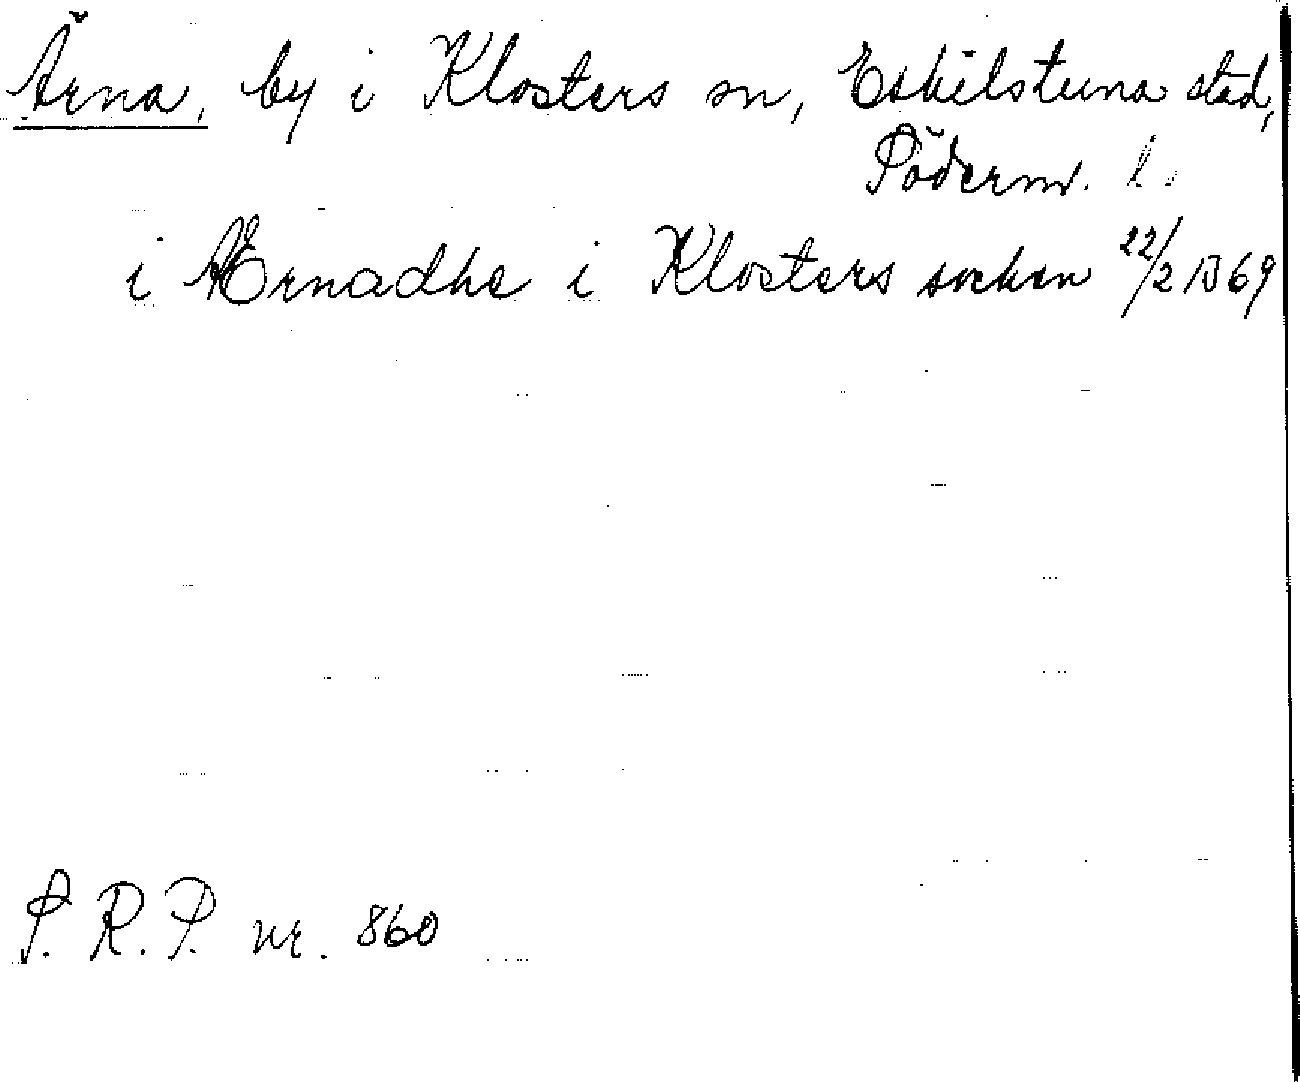 Ärna, by i Klosters sn, Eskilstuna stad,
Söderm. l.
i Ærnadhe i Klosters socken 22/2 1369
S. R. P. nr. 860